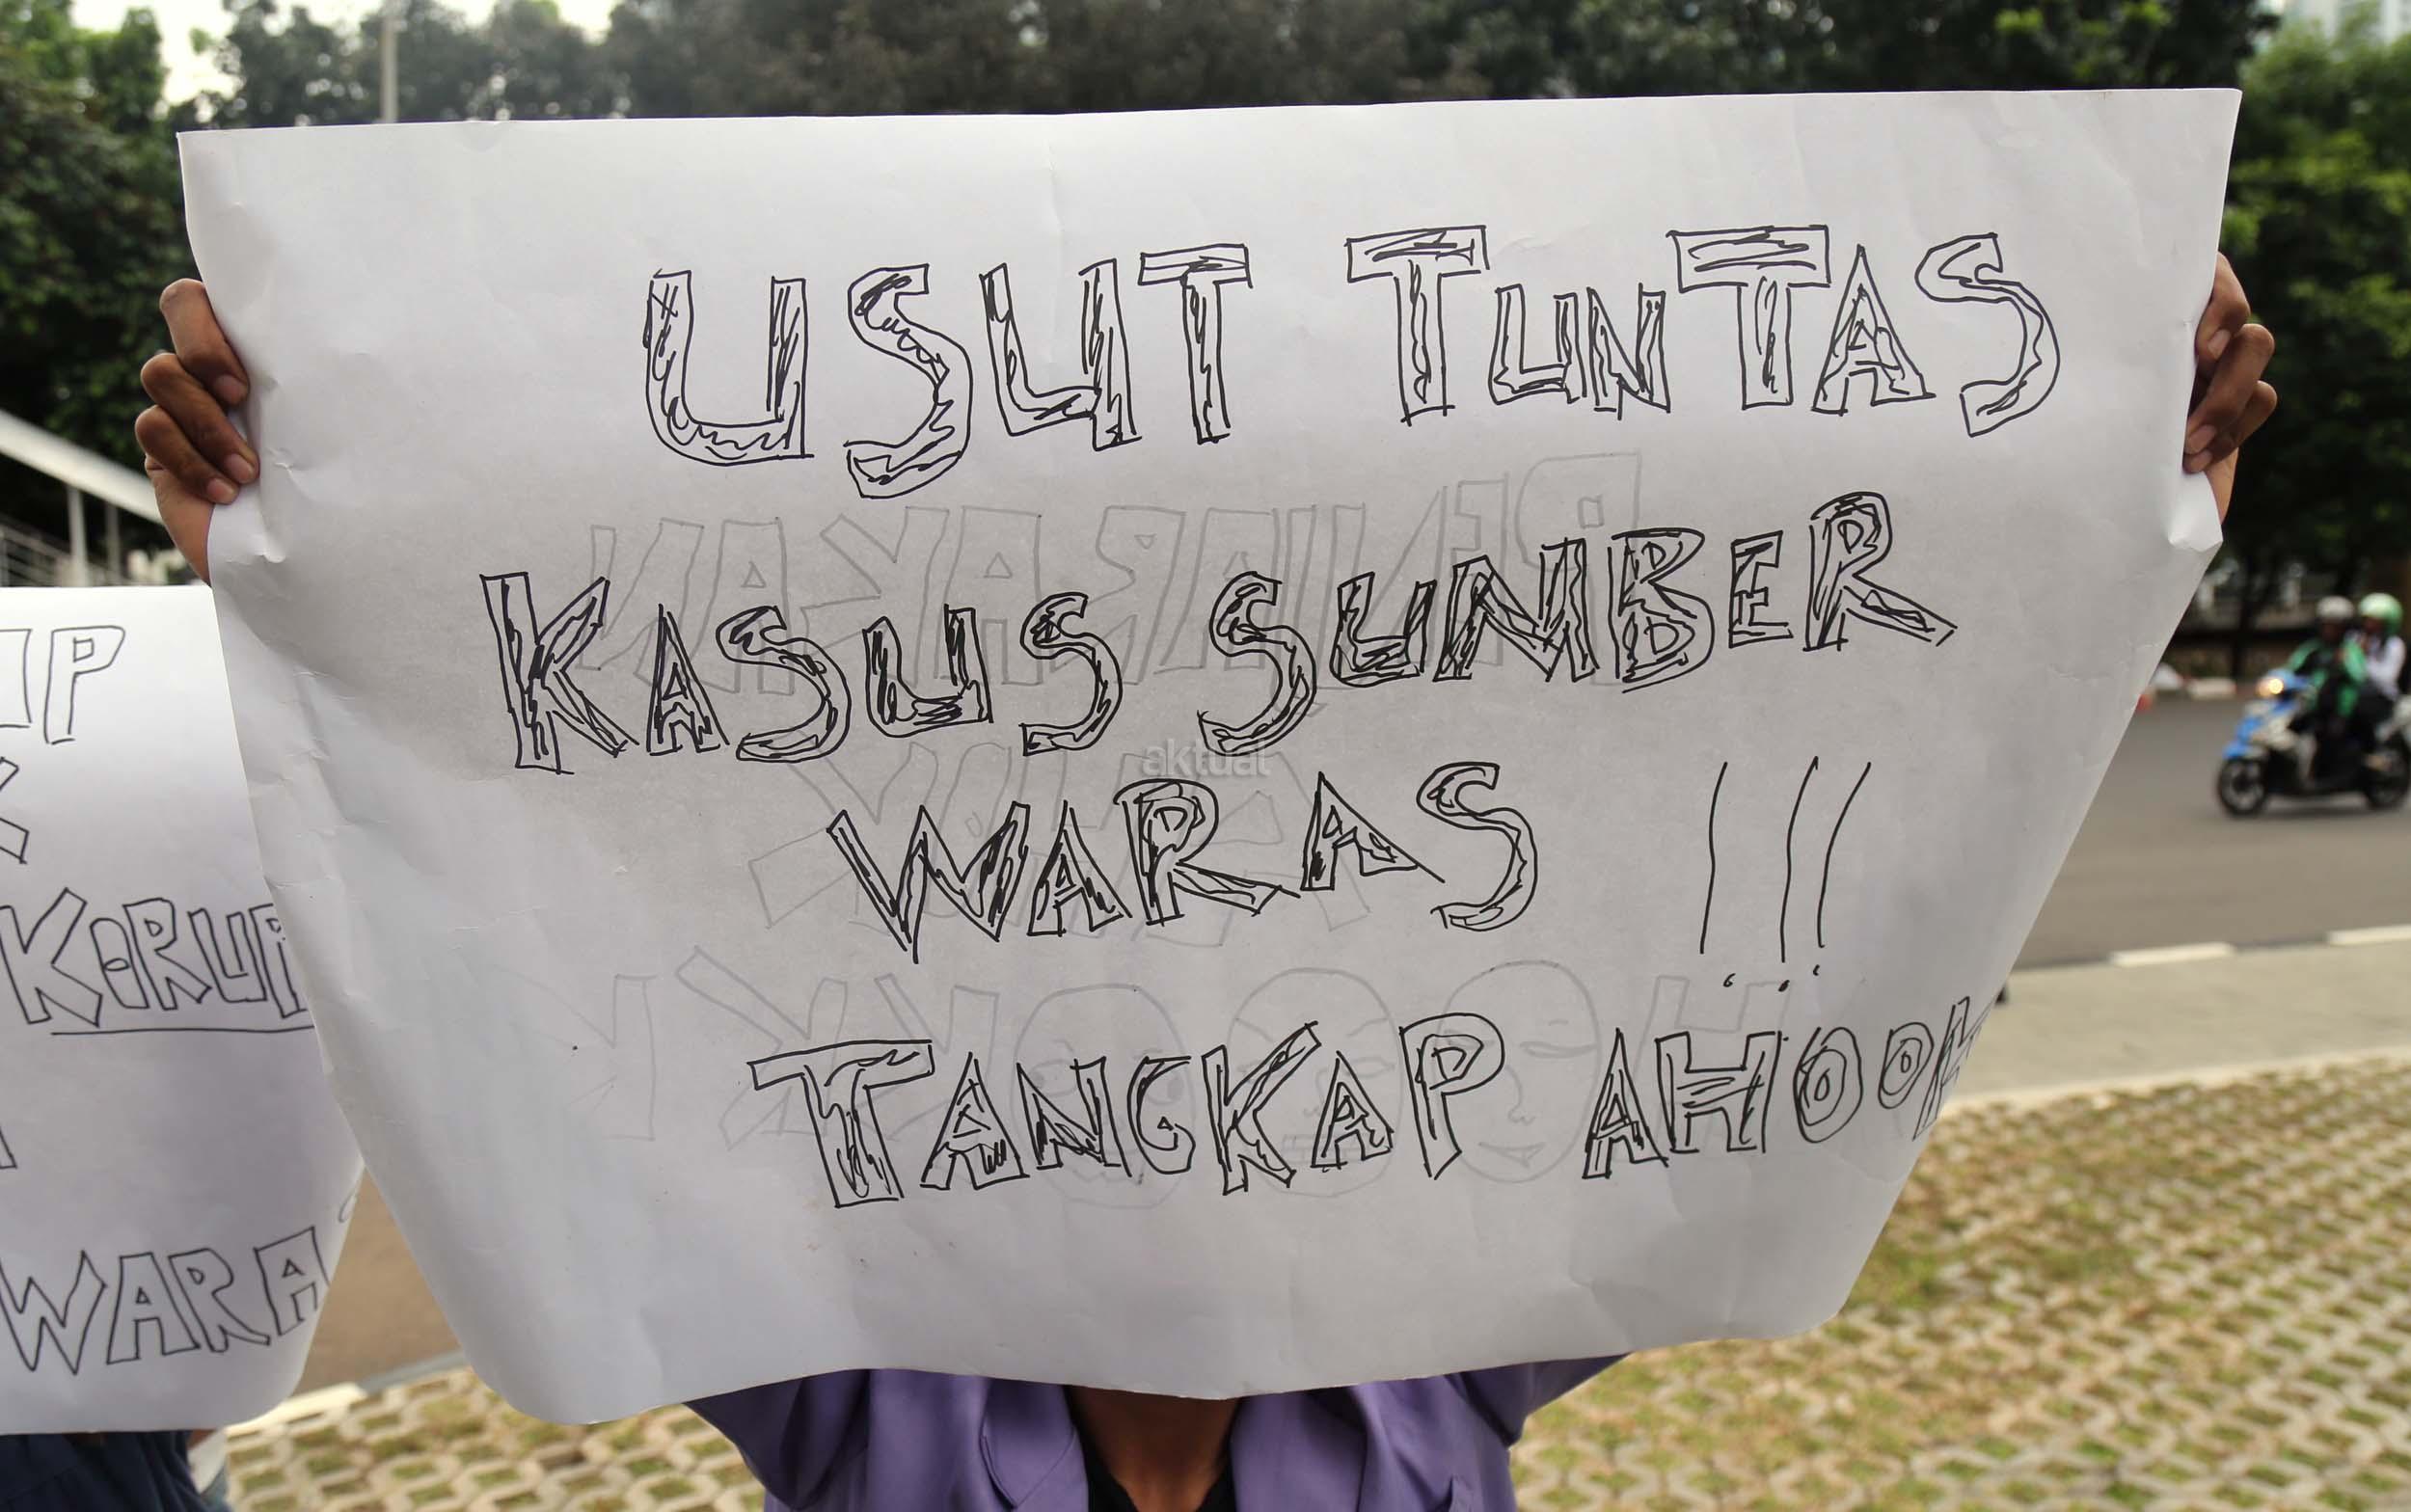 USUT TUNTAS
KASUS SUMBER
WARAS !!!
TANGKAP AHOOK
aktual
KORUP
WARA